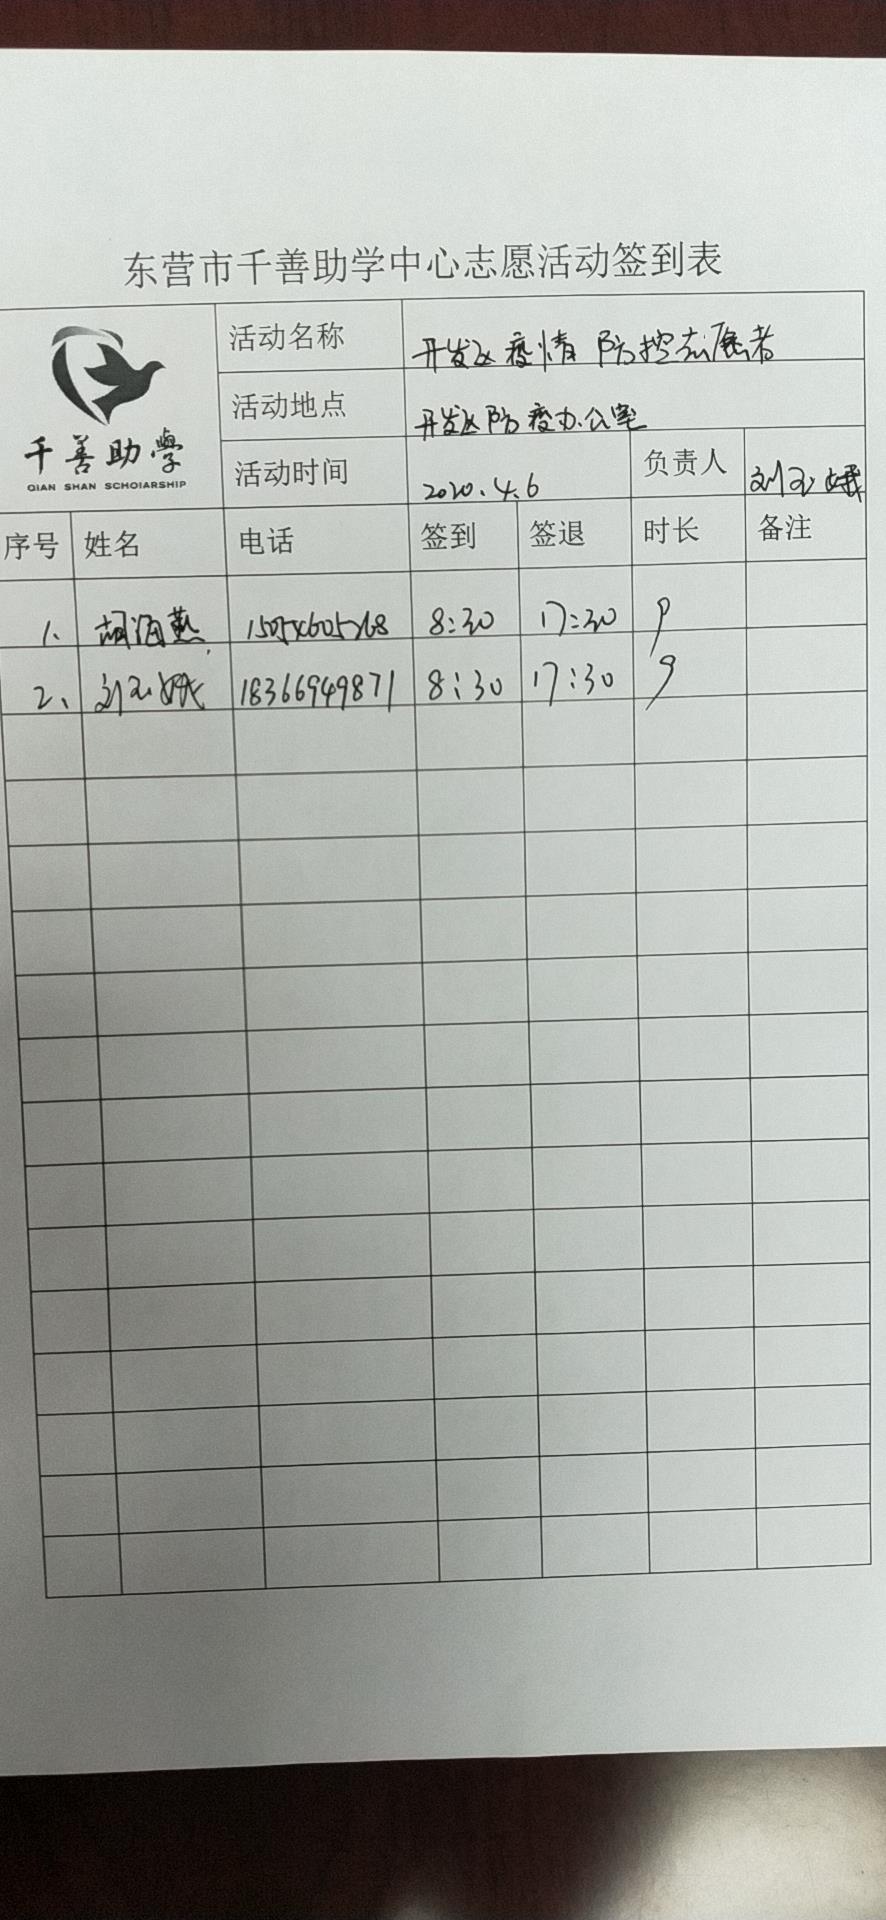 东营市千善助学中心志愿活动签到表
千善助學
QIAN SHAN SCHOIARSHIP
活动名称 开发区疫情防控志愿者
活动地点 开发区防疫办公室
活动时间 2020.4.6 负责人 刘玉娥
序号 姓名 电话 签到 签退 时长 备注
1、 胡海燕 8:30 17:30 9
2、 刘玉娥 18366949871 8:30 17:30 9